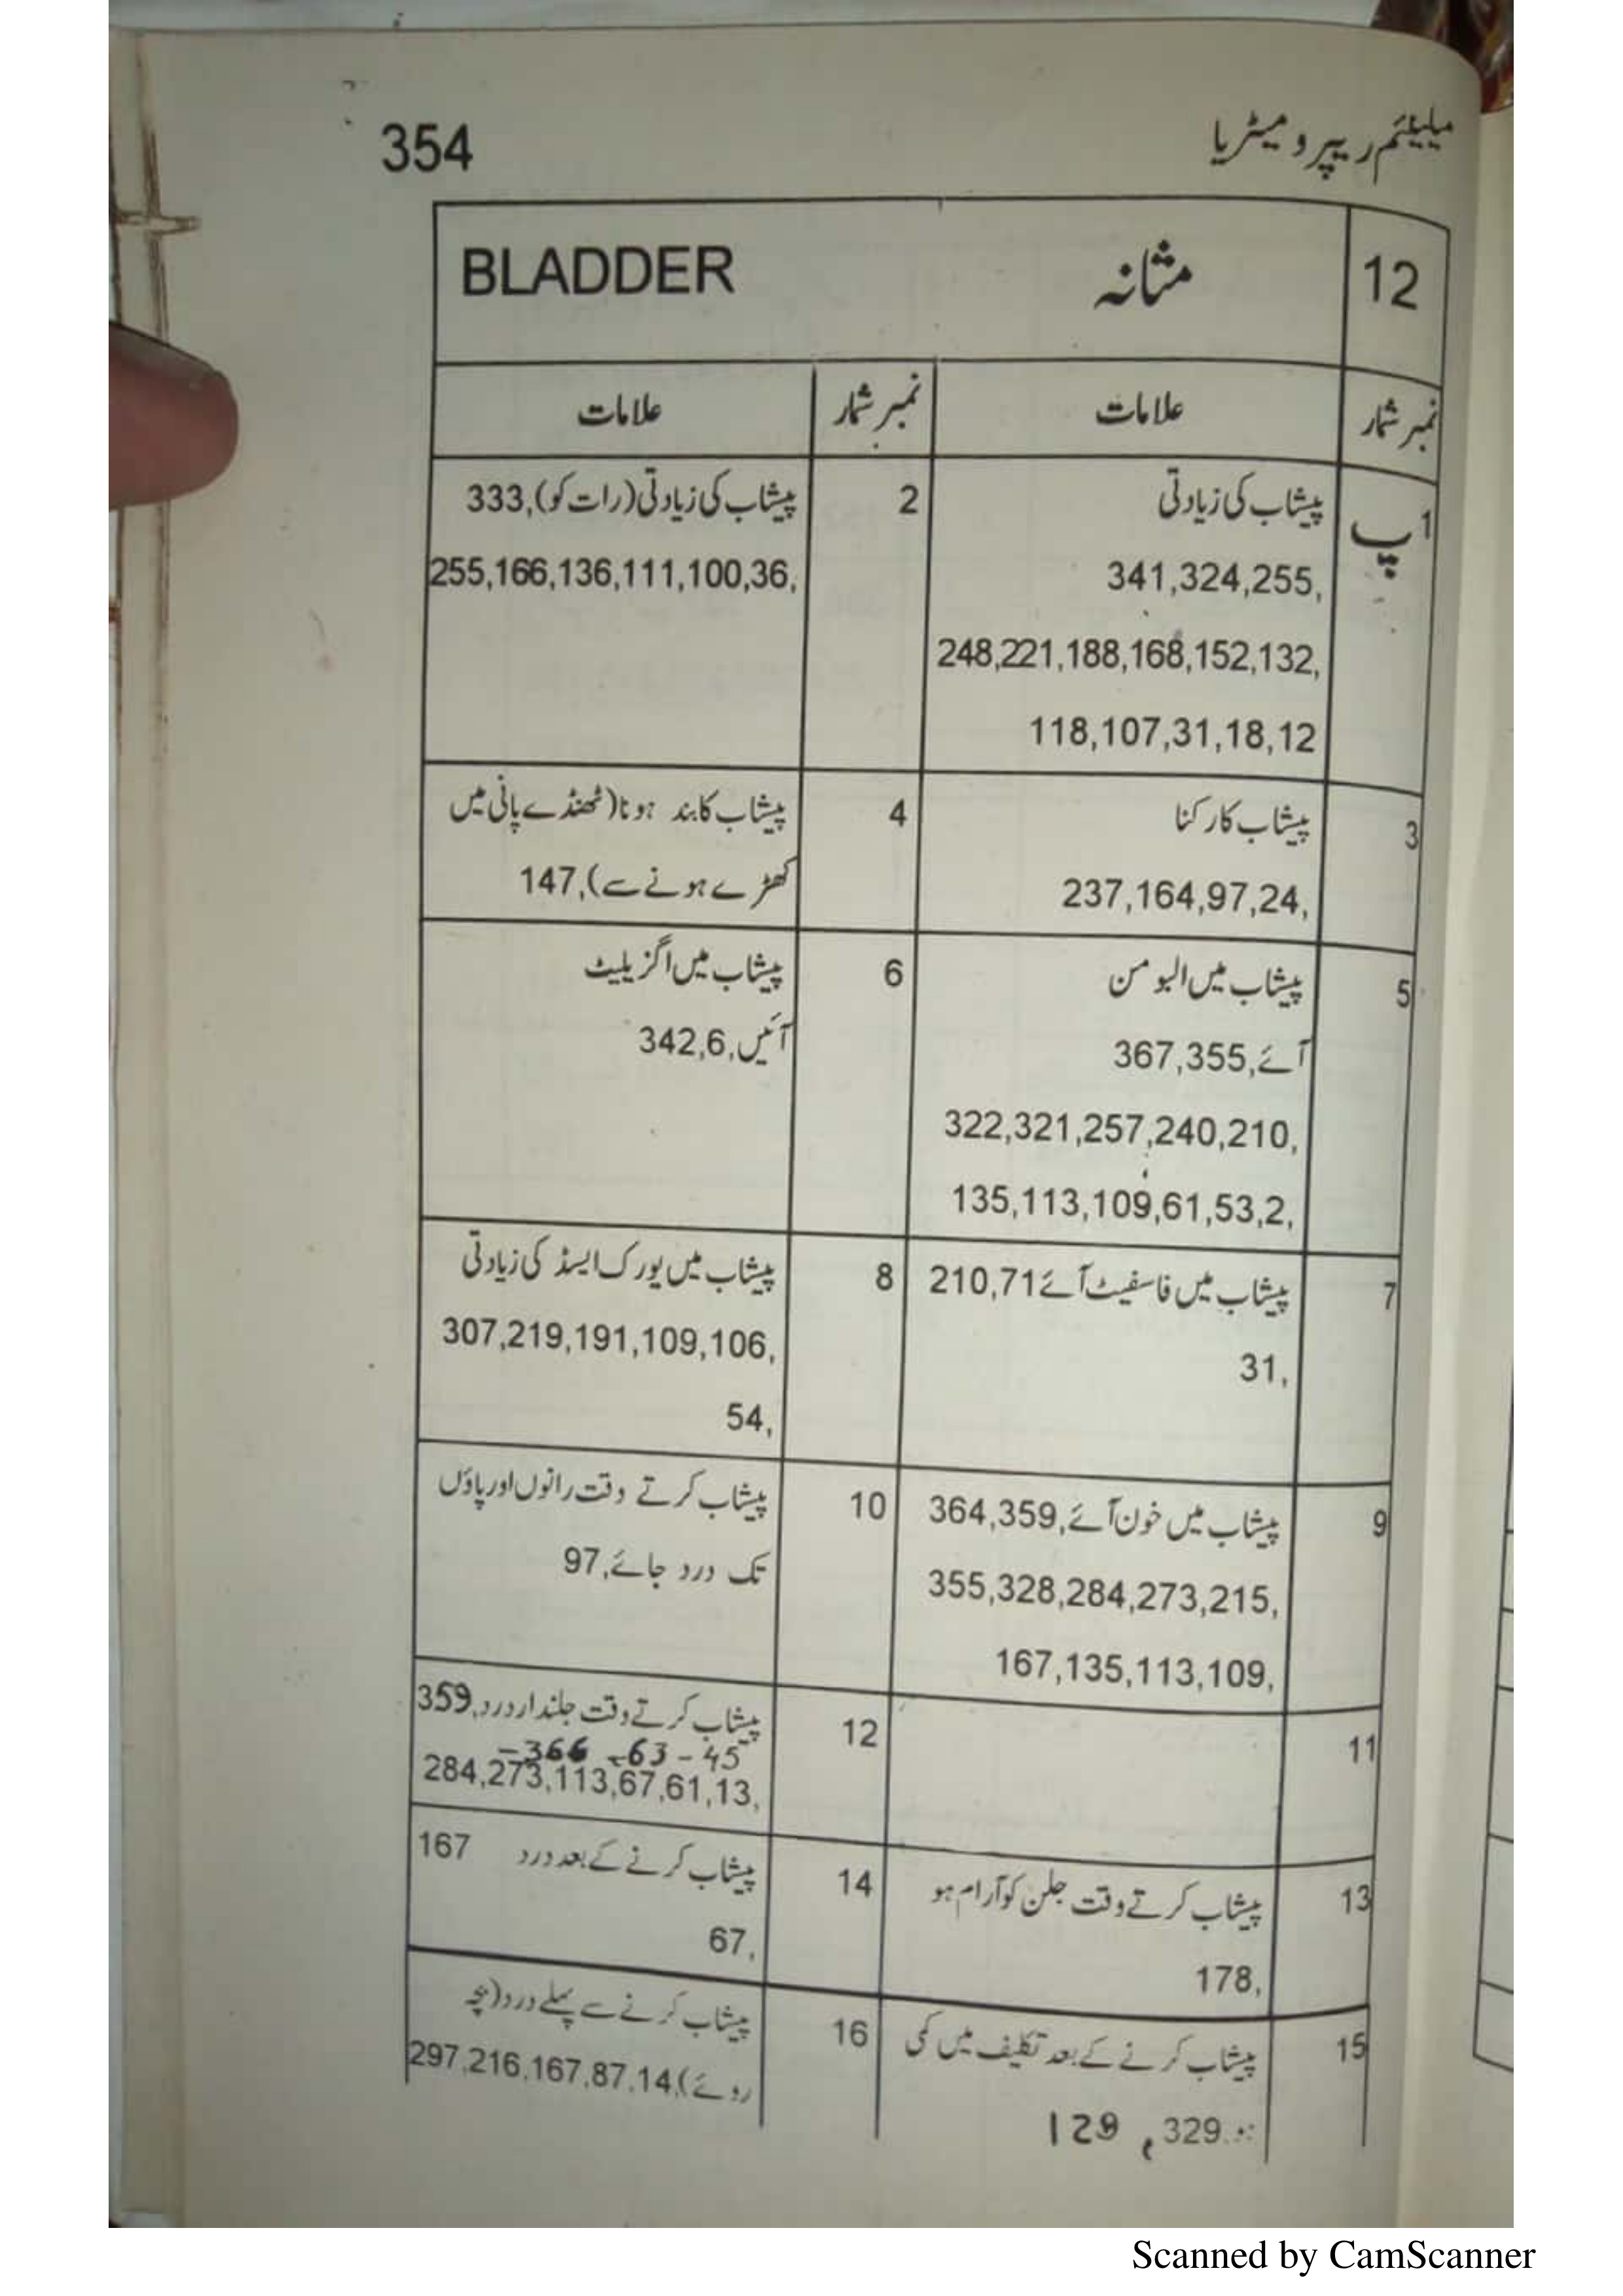 میلینئم ریپرومیٹریا
354
12
مثانہ
BLADDER
نمبر شمار
علامات
نمبر شمار
علامات
پ 1
پیشاب کی زیادتی
341,324,255,
248,221,188,168,152,132,
118,107,31,18,12
2
پیشاب کی زیادتی(رات کو),333
255,166,136,111,100,36,
3
پیشاب کا رکنا
237,164,97,24,
4
پیشاب کا بند ہونا(ٹھنڈے پانی میں
کھڑے ہونے سے),147
5
پیشاب میں البومن
آئے,367,355
322,321,257,240,210,
135,113,109,61,53,2,
6
پیشاب میں اگزیلیٹ
آئیں,342,6
7
پیشاب میں فاسفیٹ آئے 210,71
31,
8
پیشاب میں یورک ایسڈ کی زیادتی
307,219,191,109,106,
54,
9
پیشاب میں خون آئے,364,359
355,328,284,273,215,
167,135,113,109,
10
پیشاب کرتے وقت رانوں اور پاؤں
تک درد جائے,97
11
12
پیشاب کرتے وقت جلندار درد,359
-366 -63 - 45
284,273,113,67,61,13,
13
پیشاب کرتے وقت جلن کو آرام ہو
178,
14
پیشاب کرنے کے بعد درد 167
67,
15
پیشاب کرنے کے بعد تکلیف میں کمی
ہو,329,
16
پیشاب کرنے سے پہلے درد(بچہ
روئے),297,216,167,87,14
Scanned by CamScanner